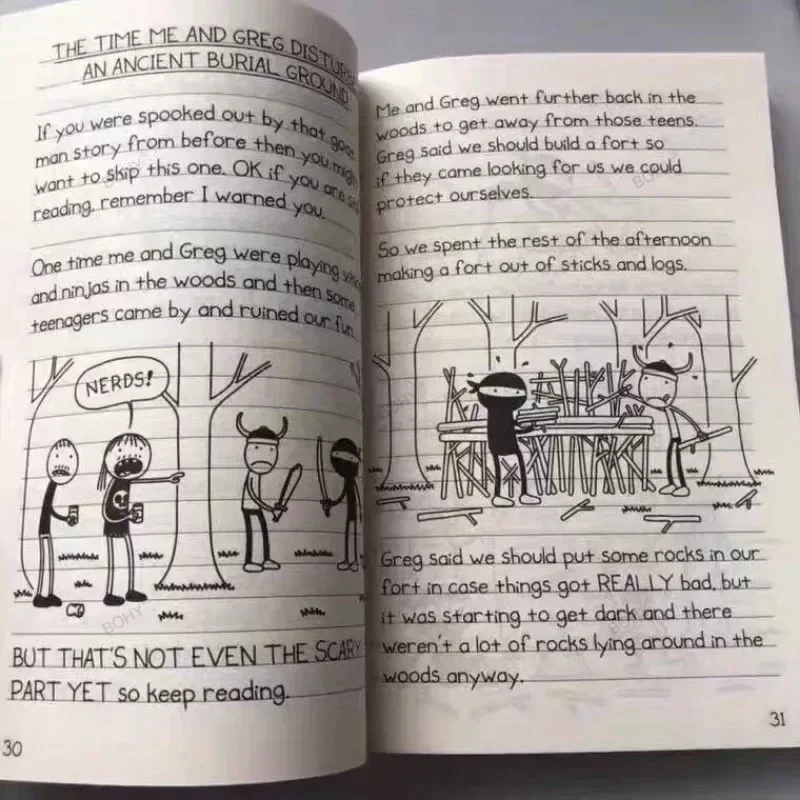 THE TIME ME AND GREG
AN ANCIENT BURIAL GROUND
If you were spooked out by that
man story from before then you
want to skip this one. OK if you are
reading, remember I warned you.
One time me and Greg were playing
and ninjas in the woods and then some
teenagers came by and ruined our fun.
NERDS!
BUT THAT'S NOT EVEN THE SCARY
PART YET so keep reading.
30
Me and Greg went further back in the
woods to get away from those teens.
Greg said we should build a fort so
if they came looking for us we could
protect ourselves.
So we spent the rest of the afternoon
making a fort out of sticks and logs.
Greg said we should put some rocks in our
fort in case things got REALLY bad, but
it was starting to get dark and there
weren't a lot of rocks lying around in the
woods anyway.
31
BOHY